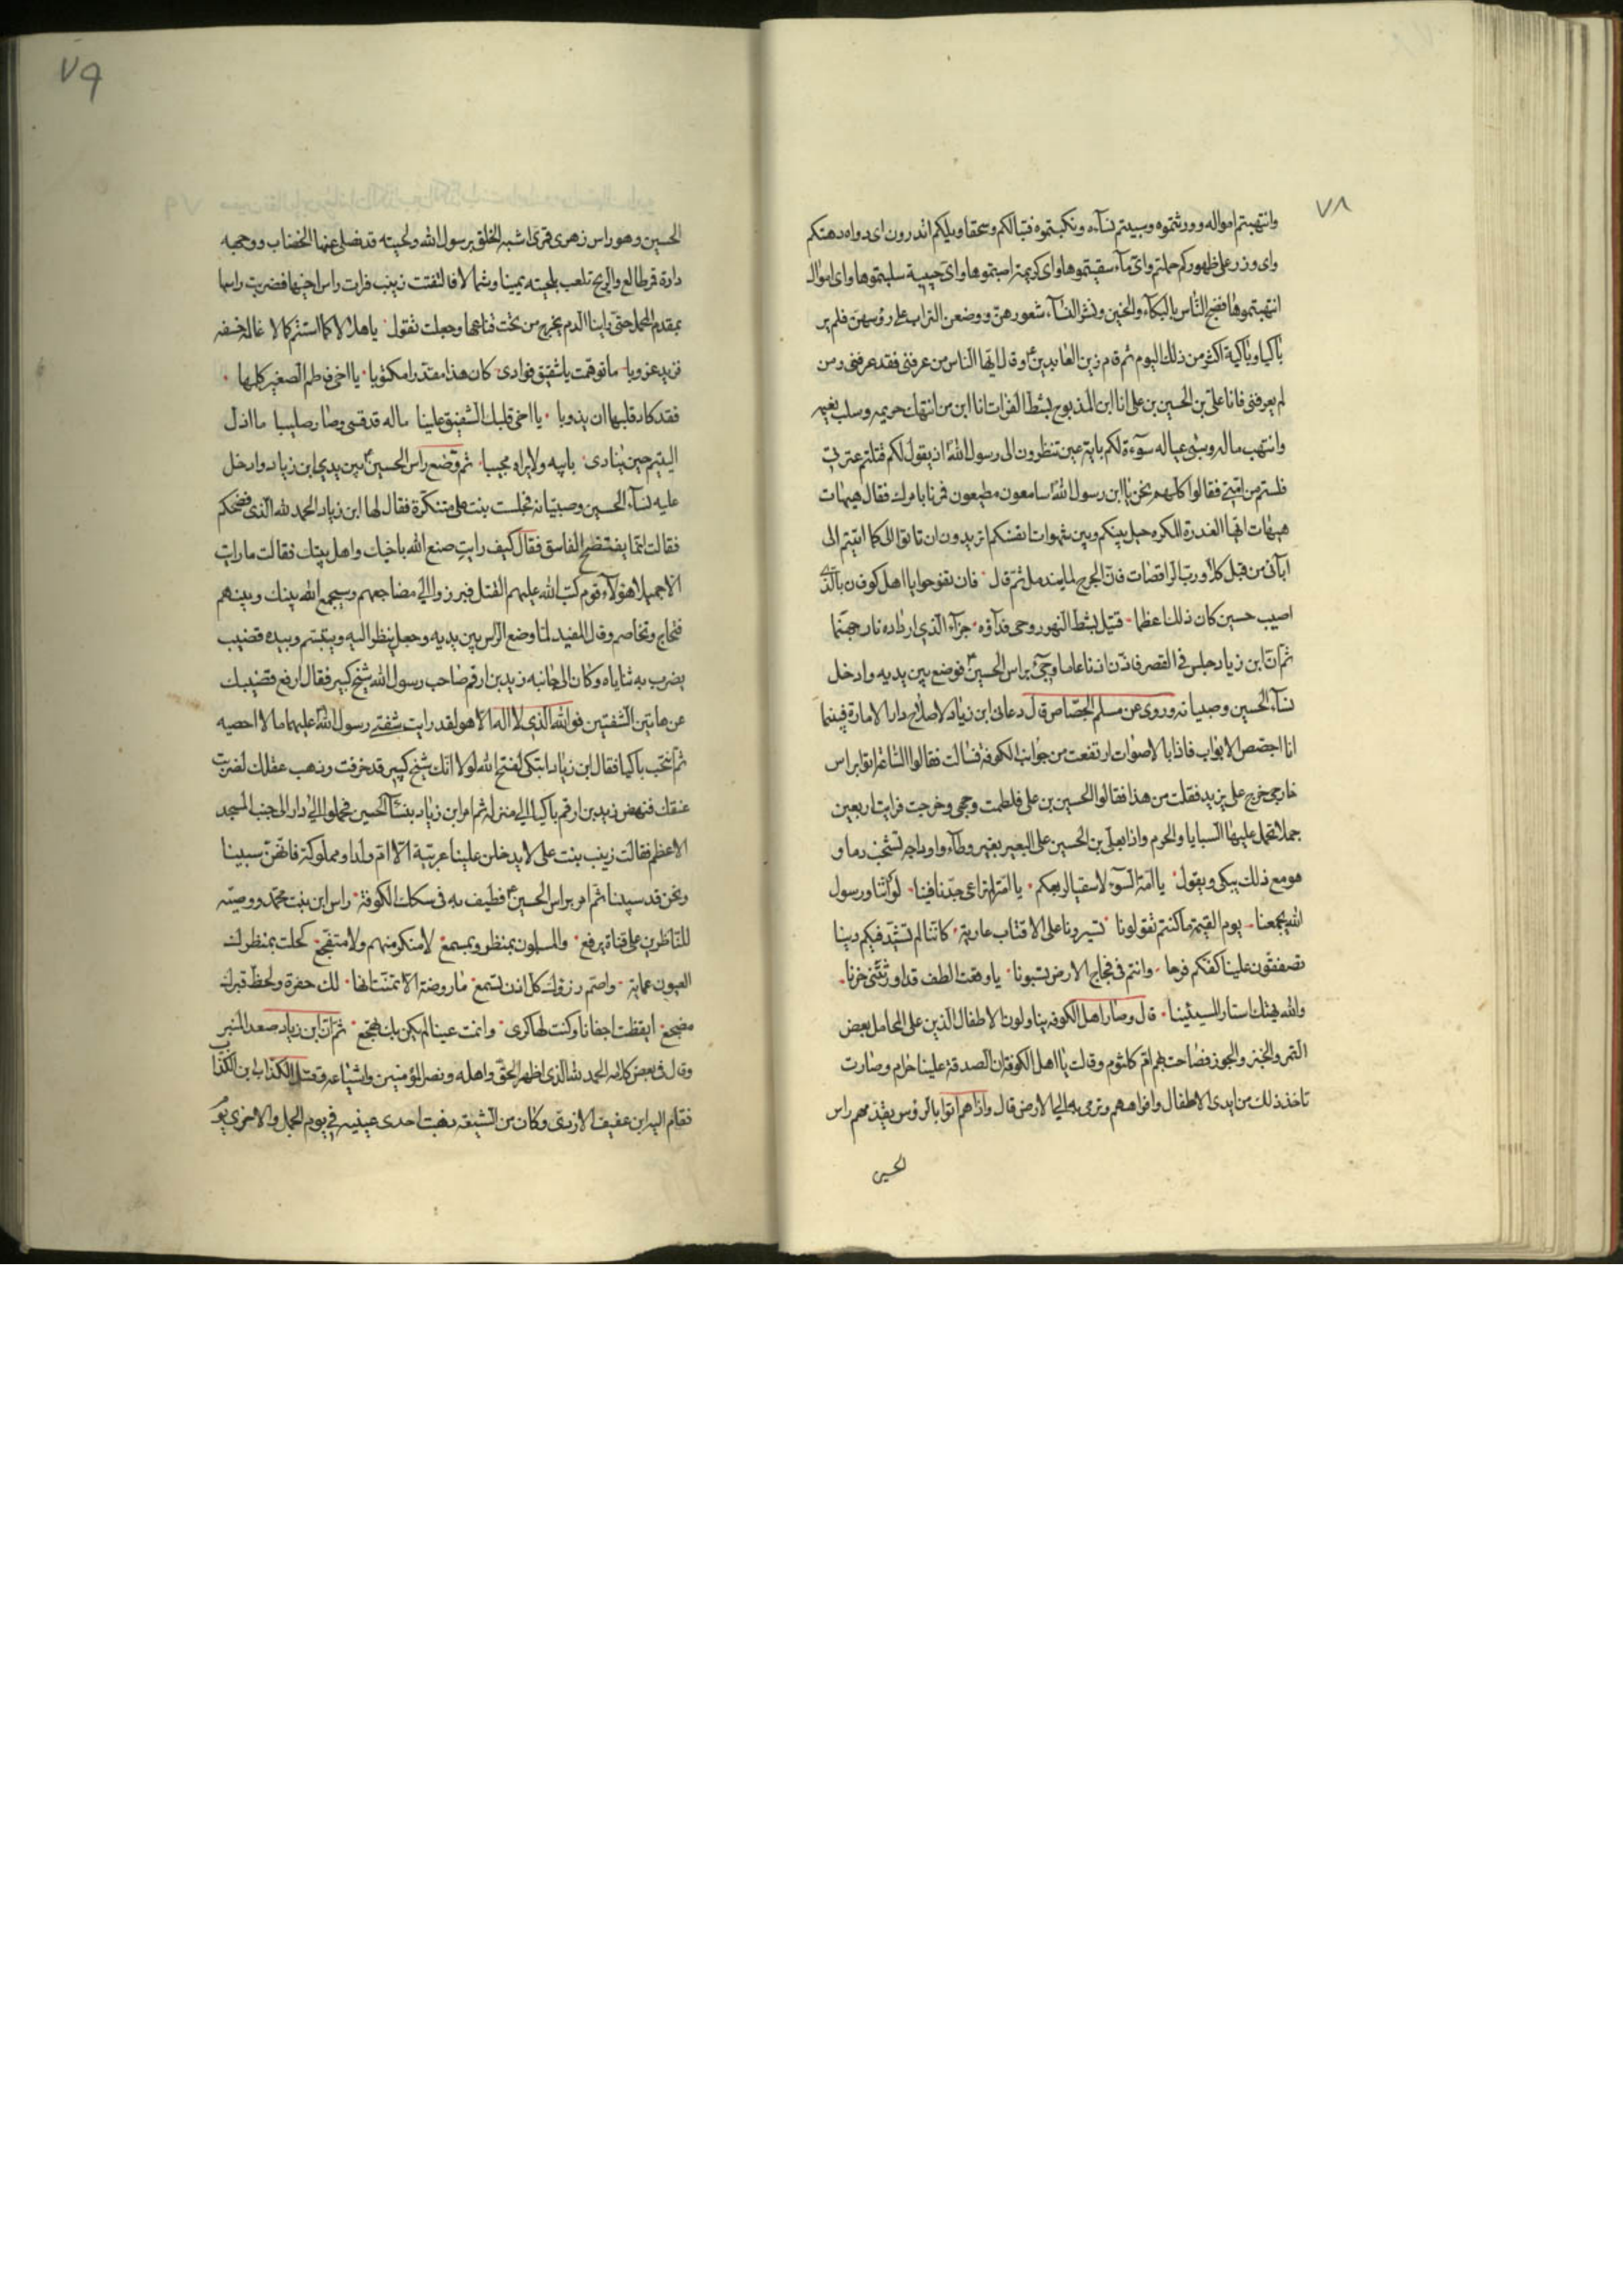 ٧٨
وانتهبتم امواله وورثتموه وسبيتم نسآءه ونكبتموه فتبا لكم وسحقا ويلكم اتدرون اى دواه دهتكم
واى وزر على ظهوركم حملتم واىّ مآء سفيتموها واى كريمة اصبتموها واىّ صبية سلبتموها واى اموال
انتهبتموها فضج النّاس بالبكآء والحنين ونشر النسآء شعورهنّ ووضعن التراب على رؤسهن فلم ير
باكيا وباكية اكثر من ذلك اليوم ثم قام زين العابدين وقال ايّها الناس من عرفنى فقد عرفنى ومن
لم يعرفنى فانا علىّ بن الحسين بن على انا ابن المذبوح بشط الفرات انا ابن من انتهك حريمه وسلب نعيمه
وانتهب ماله وسبى عياله سوءة لكم باية عين تنظرون الى رسول الله اذ يقول لكم قتلتم عترتى
فلستم من امتى فقالوا كلهم نحن يا ابن رسول الله سامعون مطيعون فمرنا بامرك فقال هيهات
هيهات ايّها الغدرة المكره حيل بينكم وبين شهوات انفسكم اتريدون ان تاتوا الىّ كما اتيتم الى
ابآئى من قبل كلا ورب الراقصات فانّ الجرح لما يندمل ثمّ قال فان تفوحوا يا اهل كوفان بالّذى
اصيب حسين كان ذلك اعظما قتيل بشط النهر روحى فدآؤه جزآء الّذي ارداه نار جهنّما
ثمّ انّ ابن زياد جلس فى القصر فاذّن اذنا عاما وجىٔ براس الحسين فوضع بين يديه وادخل
نسآء الحسين وصبيانه وروى عن مسلم الجصّاص قال دعانى ابن زياد لاصلاح دار الامارة فبينما
انا اجصّص الابواب فاذا بالاصوات ارتفعت من جوانب الكوفة فسالت فقالوا الساعة اتوا براس
خارجى خرج على يزيد فقلت من هذا فقالوا الحسين بن على فلطمت وجهى وخرجت فرايت اربعين
جملا تحمل عليها السبايا والحرم واذا بعلى بن الحسين على البعير بغير وطآء واوداجه تشخب دما و
هو مع ذلك يبكى ويقول يا امّة السّوء لا سقيا لربعكم يا امّة لم تراعى جدّنا فينا لو انّنا ورسول
الله يجمعنا يوم القيمة ما كنتم تقولونا تسيرونا على الاقتاب عارية كانّنا لم نشيّد فيكم دينا
تصفقون علينا كفّكم فرحا وانتم فى فجاج الارض تسبونا يا وقعة الطف قد اورثتنى حزنا
والله يهتك استار المسيئينا قال وصار اهل الكوفه يناولون الاطفال الذين على المحامل بعض
التمر والخبز والجوز فصاحت بهم امّ كلثوم وقالت يا اهل الكوفة ان الصدقة علينا حرام وصارت
تاخذ ذلك من ايدى الاطفال وافواههم وترمى به الى الارض قال واذا هم اتوا بالرؤس يقدمهم راس
الحسين
٧٩
الحسين وهو راس زهرى قمرى اشبه الخلق برسول الله ولحيته قد نصلى عنها الخضاب ووجهه
دارة قمر طالع والريح تلعب بلحيته يمينا وشمالا فالتفتت زينب فرات راس اخيها فضربت راسها
بمقدم المحمل حتى راينا الدم يخرج من تحت قناعها وجعلت تقول يا هلالا لما استتم كمالا غاله خسفه
فزيد غروبا ما توهمت يا شقيق فوادى كان هذا مقدّرا مكتوبا يا اخى فاطم الصغير كلمها
فقد كاد قلبها ان يذوبا يا اخى قلبك الشفيق علينا ماله قد قسى وصار صليبا ما اذلّ
اليتيم حين ينادى بابيه ولا يراه مجيبا ثم وضع راس الحسين بين يدى ابن زياد وادخل
عليه نسآء الحسين وصبيانه فجلست بنت على متنكّرة فقال لها ابن زياد الحمد لله الّذى فضحكم
فقالت انّما يفتضح الفاسق فقال كيف رايت صنع الله باخيك واهل بيتك فقالت ما رايت
الّا جميلا هؤلاء قوم كتب الله عليهم القتل فبرزوا الى مضاجعهم وسيجمع الله بينك وبينهم
فتحاج وتخاصم وقال المفيد لمّا وضع الراس بين يديه وجعل ينظر اليه ويتبسّم وبيده قضيب
يضرب به ثناياه وكان الى جانبه زيد بن ارقم صاحب رسول الله شيخ كبير فقال ارفع قضيبك
عن هاتين الشفتين فو الله الذى لا اله الّا هو لقد رايت شفتى رسول الله عليهما ما لا احصيه
ثمّ انتحب باكيا فقال ابن زياد اتبكى لفتح الله لولا انّك شيخ كبير قد خرفت وذهب عقلك لضربت
عنقك فنهض زيد بن ارقم باكيا الى منزله ثم امر ابن زياد بنسآء الحسين فحملوا الى دار الى جنب المسجد
الاعظم فقالت زينب بنت على لا يدخلن علينا عربيّة الّا امّ ولد او مملوكة فانّهنّ سبينا
ونحن قد سبينا ثم امر براس الحسين فطيف به فى سكك الكوفة راس ابن بنت محمّد ووصيّه
للنّاظرين على قناة يرفع والمسلمون بمنظر وبمسمع لا منكر منهم ولا متفجّع كحلت بمنظرك
العيون عماية واصمّ رزؤك كل اذن تسمع ما روضة الّا تمنّت انّها لك حفرة ولحظّ قبرك
مضجع ايقظت اجفانا وكنت لها كرى وانمت عينا لم يكن بك تهجع ثمّ انّ ابن زياد صعد المنبر
وقال فى بعض كلامه الحمد لله الذى اظهر الحقّ واهله ونصر المؤمنين واشياعه وقتل الكذاب ابن الكذّاب
فقام اليه ابن عفيف الازدى وكان من الشيعة ذهبت احدى عينيه فى يوم الجمل والاخرى يوم